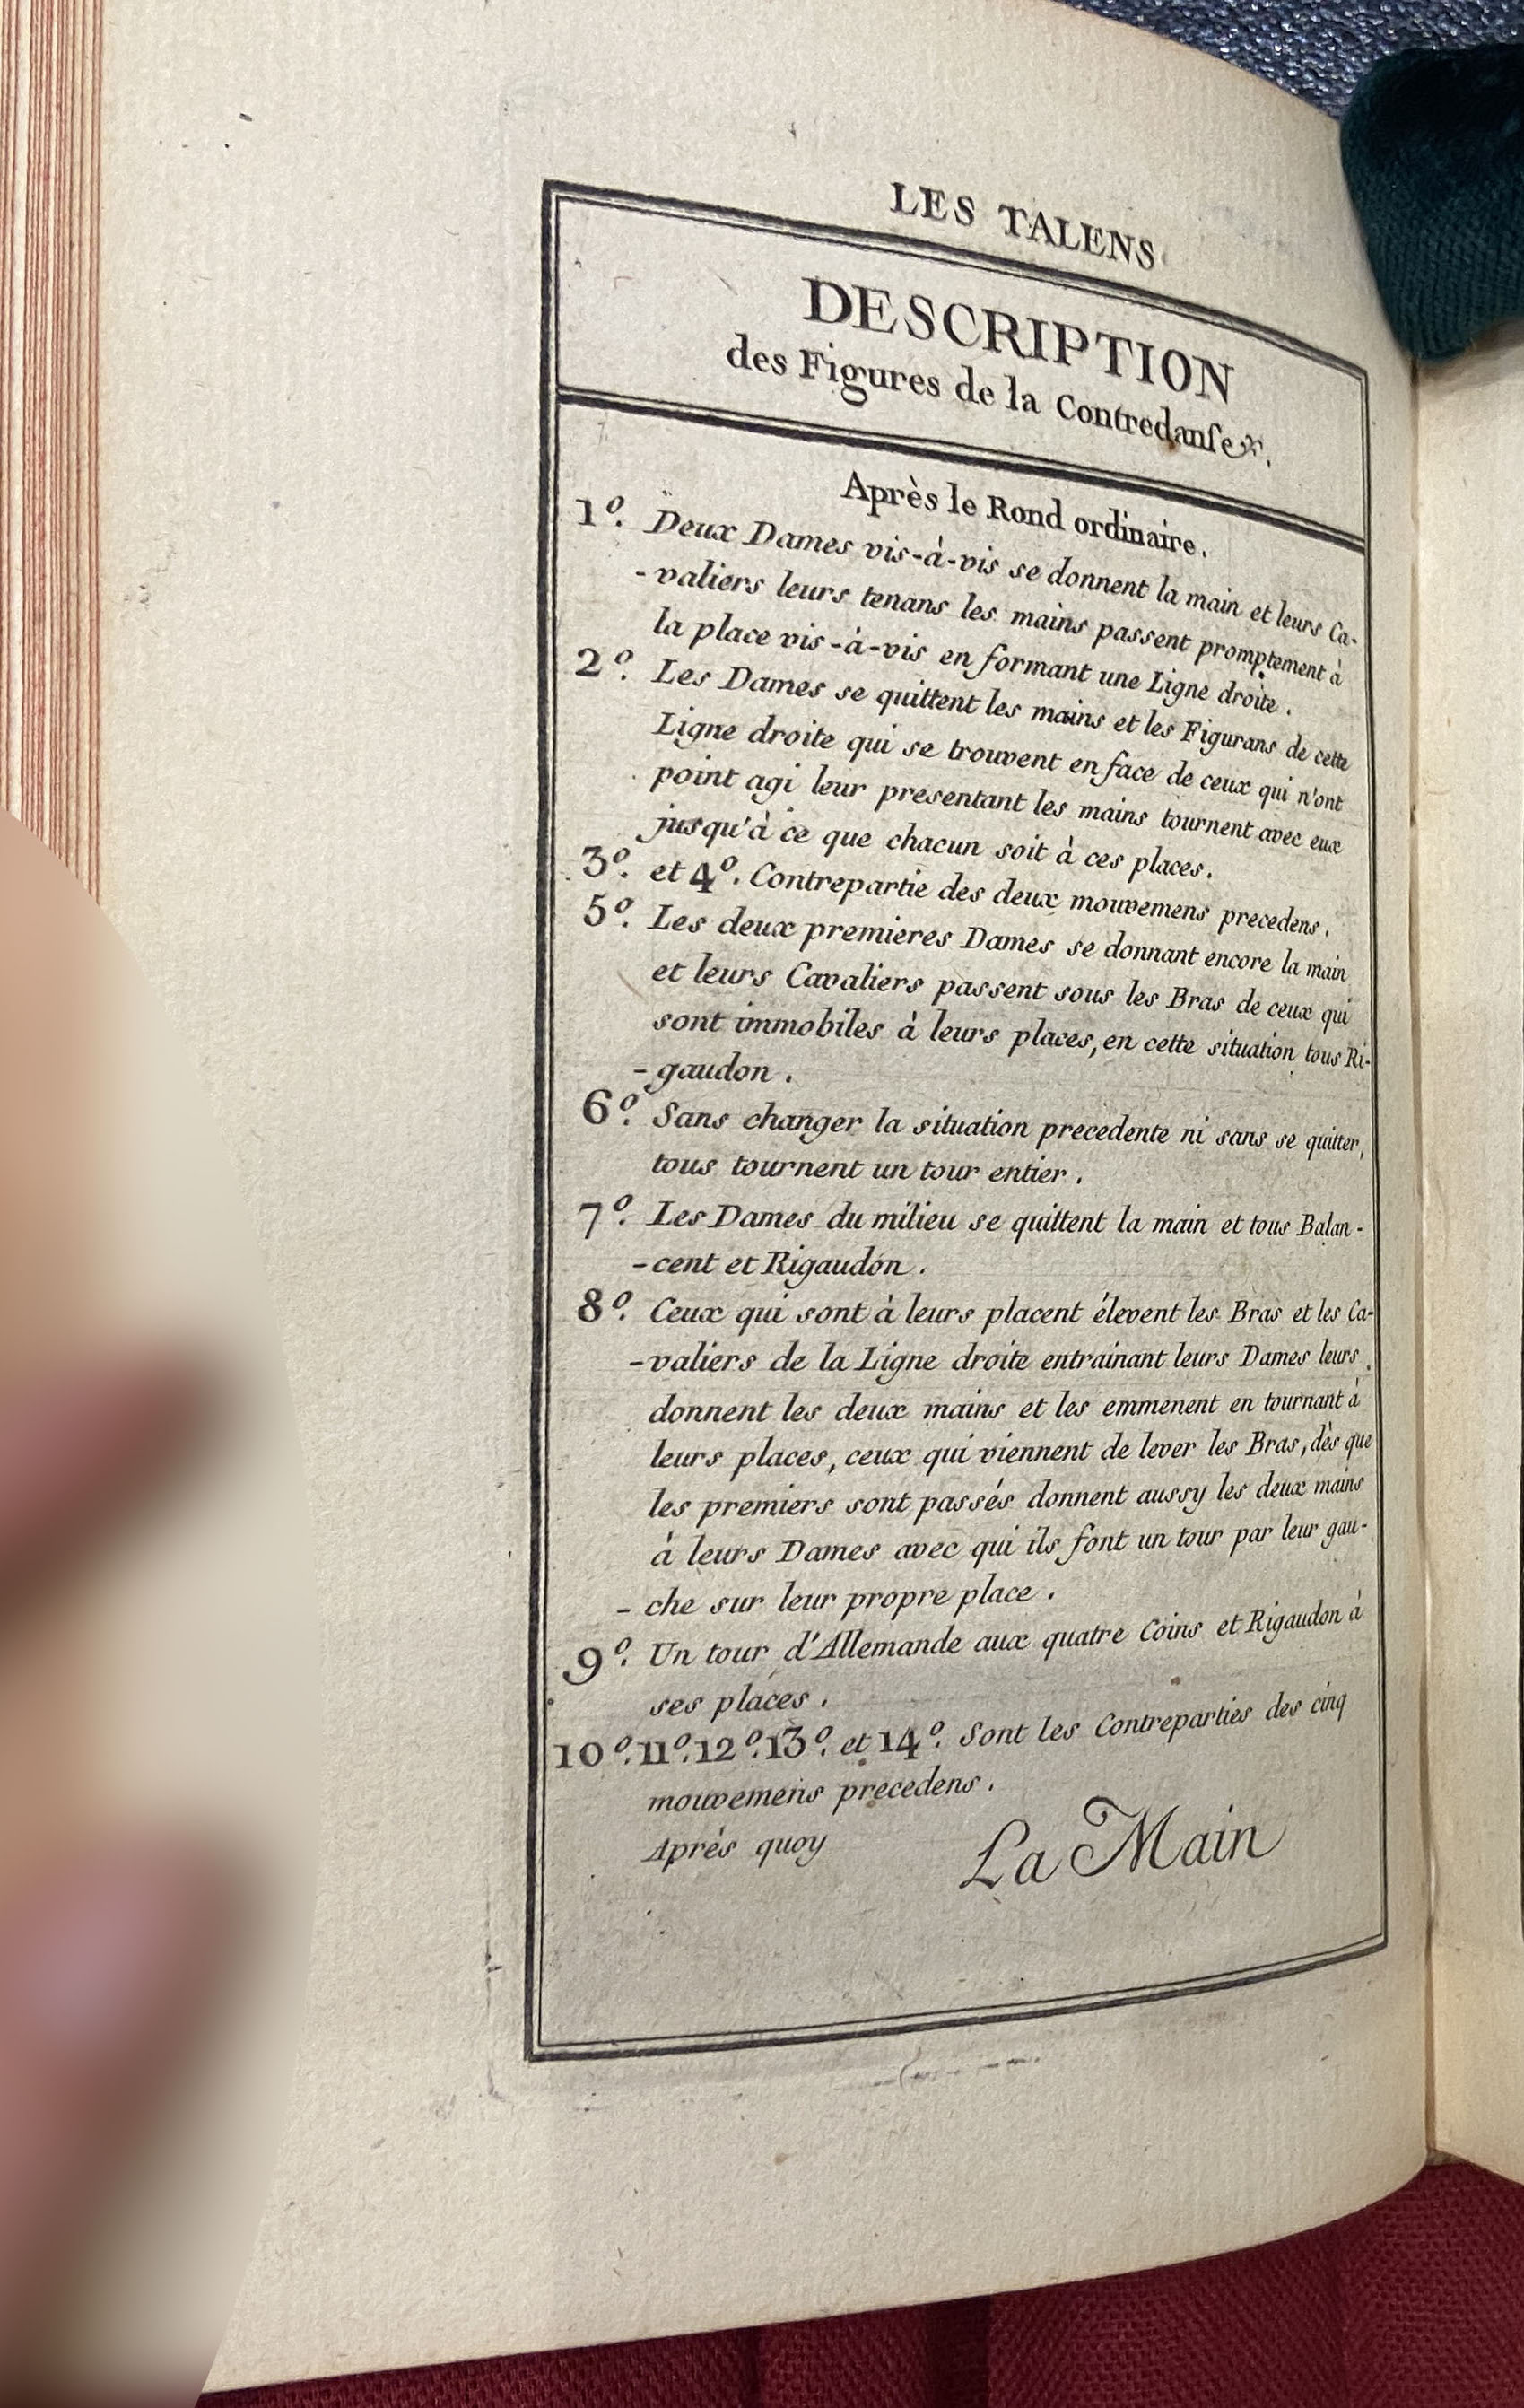 LES TALENS
DESCRIPTION
des Figures de la Contredanſe.
Après le Rond ordinaire.
1º. Deux Dames vis-à-vis se donnent la main et leurs Ca-
-valiers leurs tenans les mains passent promptement à
la place vis-à-vis en formant une Ligne droite.
2º. Les Dames se quittent les mains et les Figurans de cette
Ligne droite qui se trouvent en face de ceux qui n'ont
point agi leur presentant les mains tournent avec eux
jusqu'à ce que chacun soit à ces places.
3º. et 4º. Contrepartie des deux mouvemens precedens.
5º. Les deux premieres Dames se donnant encore la main
et leurs Cavaliers passent sous les Bras de ceux qui
sont immobiles à leurs places, en cette situation tous Ri-
-gaudon.
6º. Sans changer la situation precedente ni sans se quitter,
tous tournent un tour entier.
7º. Les Dames du milieu se quittent la main et tous Balan-
-cent et Rigaudon.
8º. Ceux qui sont à leurs placent élevent les Bras et les Ca-
-valiers de la Ligne droite entrainant leurs Dames leurs
donnent les deux mains et les emmenent en tournant à
leurs places, ceux qui viennent de lever les Bras, dès que
les premiers sont passés donnent aussy les deux mains
à leurs Dames avec qui ils font un tour par leur gau-
-che sur leur propre place.
9º. Un tour d'Allemande aux quatre Coins et Rigaudon à
ses places.
10º. 11º. 12º. 13º. et 14º. Sont les Contreparties des cinq
mouvemens precedens.
Après quoy La Main